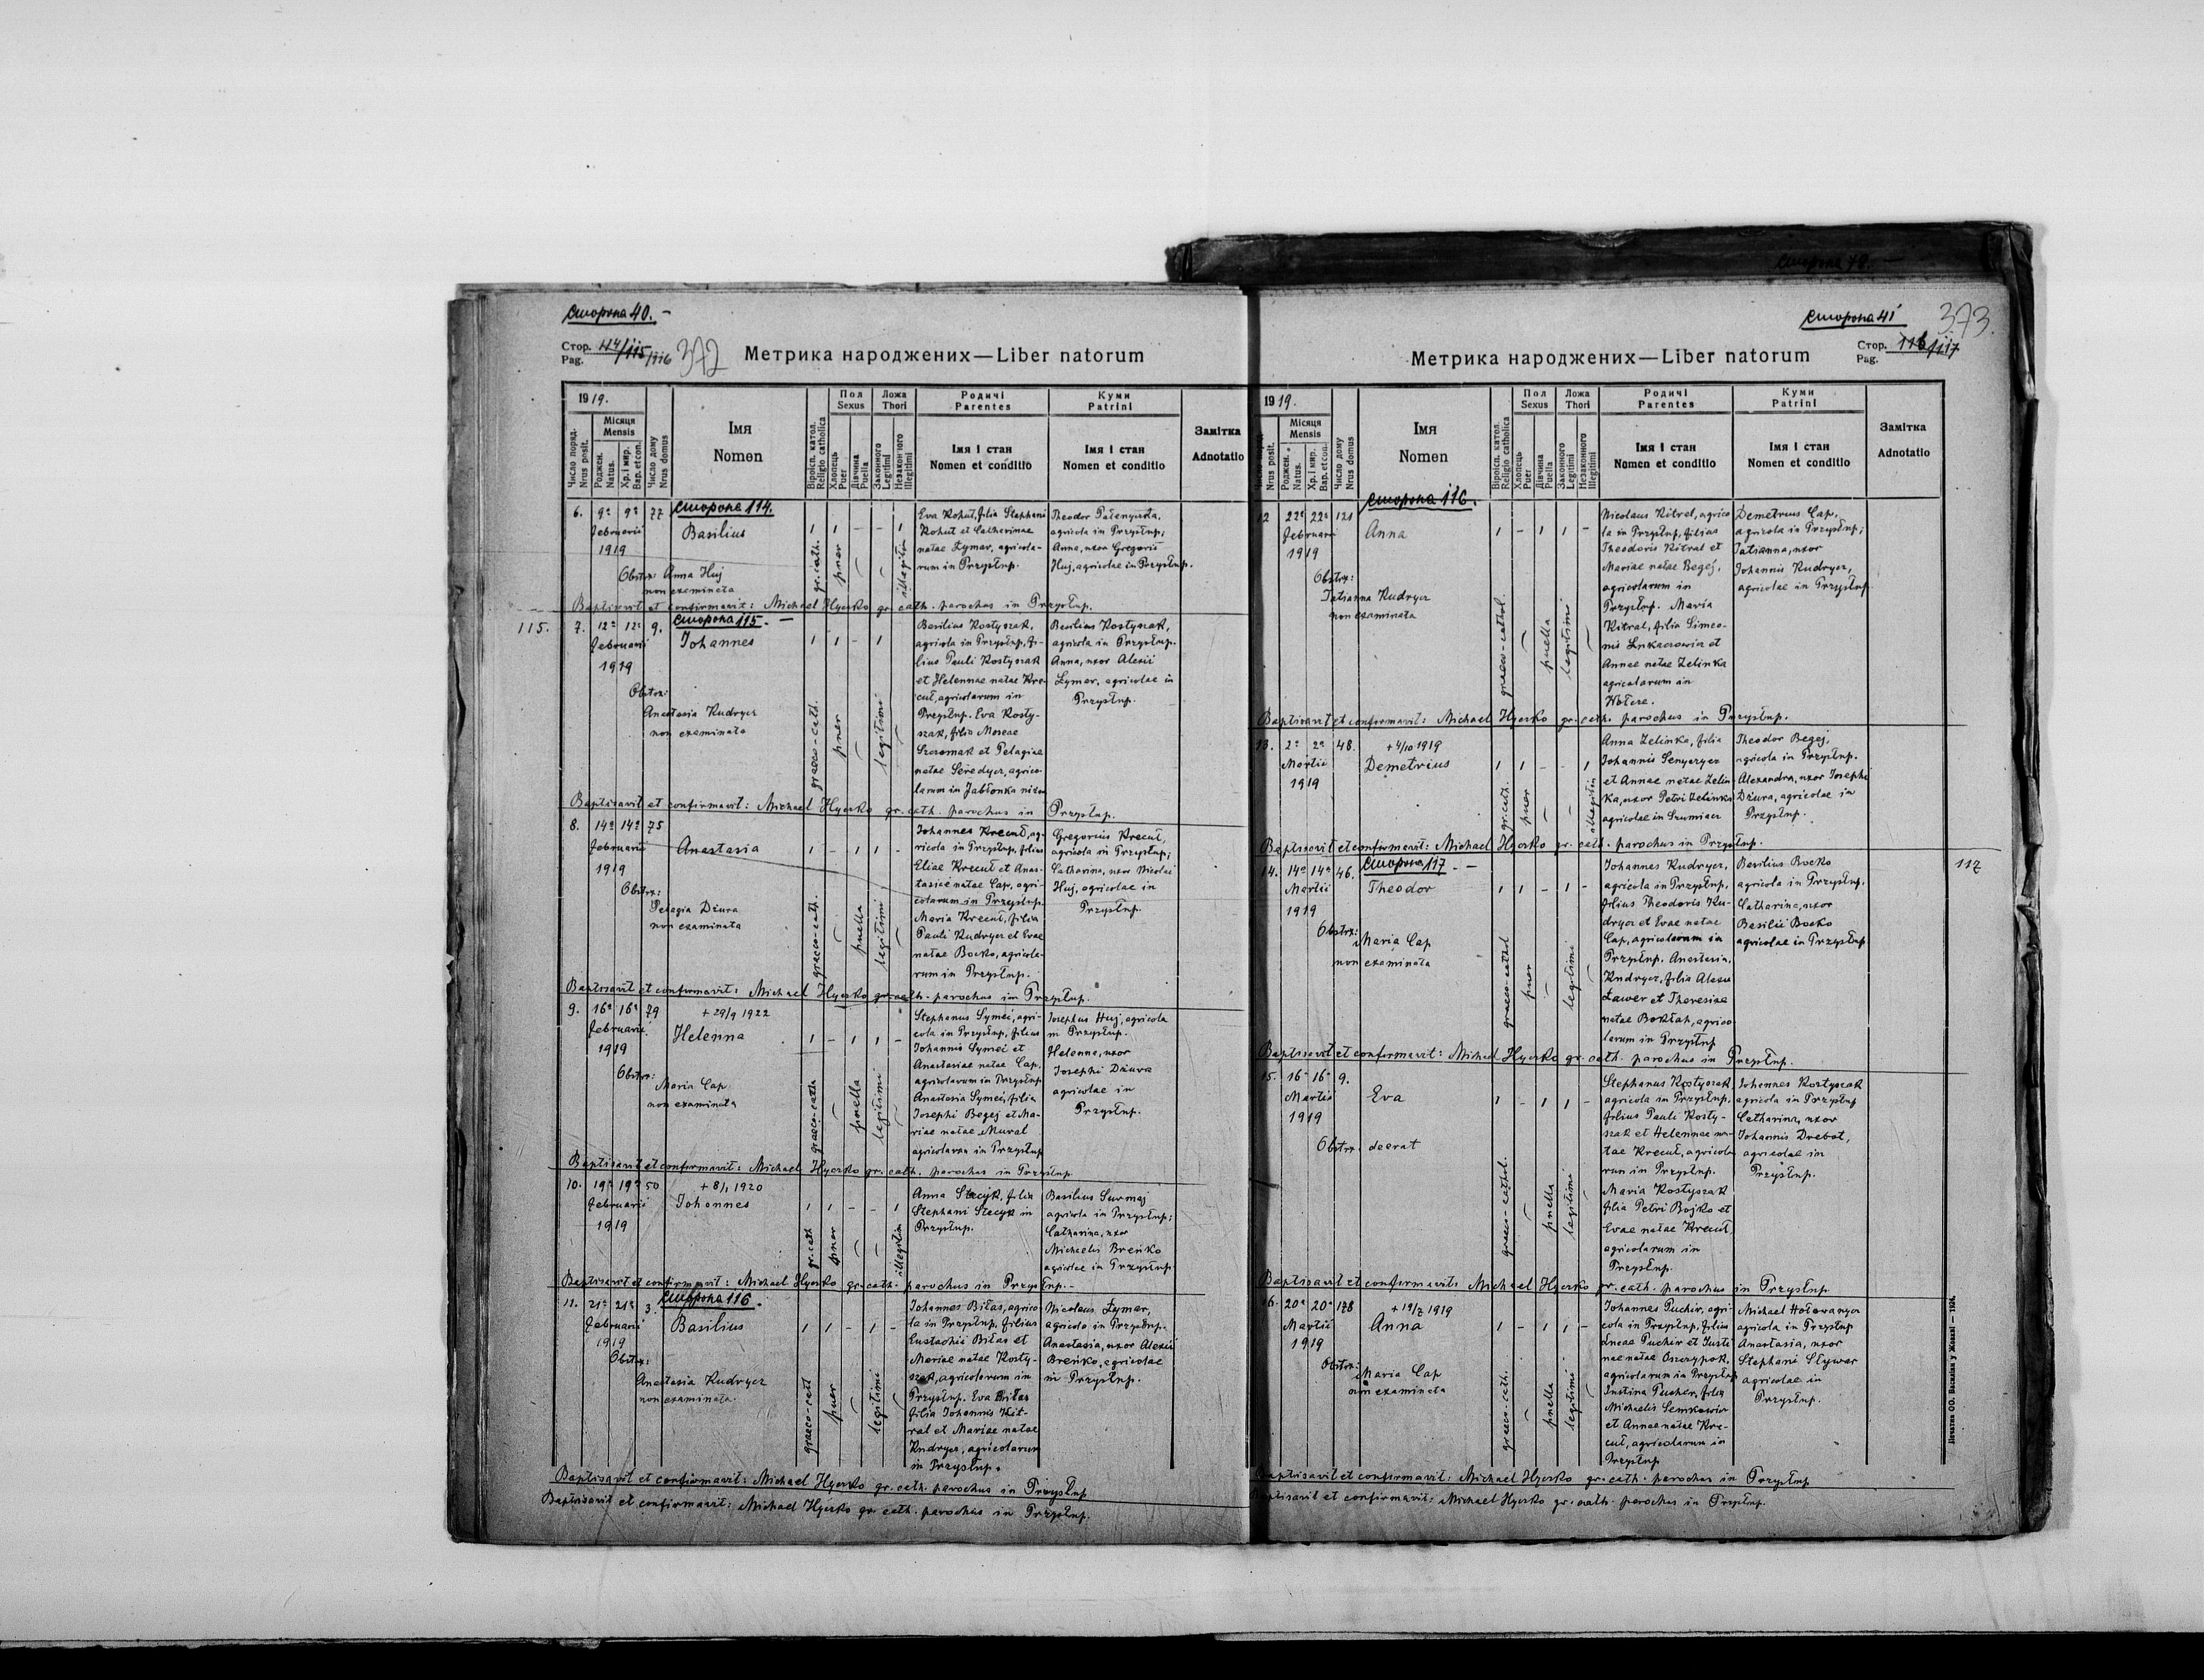 Сторона 40. -
Стор. 114/115/116 372
Pag.
Метрика народжених—Liber natorum
1919.
Число поряд.
Nrus posit.
Місяця
Mensis
Роджен.
Natus.
Хр. і мир.
Bap. et con.
Число дому
Nrus domus
Імя
Nomen
Віроісп. катол.
Religio catholica
Пол
Sexus
Хлопець
Puer
Дівчина
Puella
Ложа
Thori
Законного
Legitimi
Незаконного
Illegitimi
Родичі
Parentes
Імя і стан
Nomen et conditio
Куми
Patrini
Імя і стан
Nomen et conditio
Замітка
Adnotatio
Сторона 114.
6. 9ª 9ª 77
Februarii
1919
Basilius
Obstrx: Anna Huj
non examinata
gr. cath.
puer
illegitimi
Eva Kohut, filia Stephani
Kohut et Catharinae
natae Łymar, agricola-
rum in Przysłup.
Theodor
agricola in Przysłup;
Anna, uxor Gregorii
Huj, agricolae in Przysłup.
Baptisavit et confirmavit: Michael Hyczko gr. cath. parochus in Przysłup.
115.
Сторона 115. -
7. 12ª 12ª 9.
Februarii
1919
Johannes
Obstrx:
Anastasia Kudrycz
non examinata
graeco-cath.
puer
legitimi
Basilius Kostyszak,
agricola in Przysłup, fi-
lius Pauli Kostyszak
et Helennae natae Kre-
cuł, agricolarum in
Przysłup. Eva Kosty-
szak, filia Moseae
Szeremak et Pelagiae
natae Seredycz, agrico-
larum in Jabłonka
Basilius Kostyszak,
agricola in Przysłup.
Anna, uxor Alexii
Łymar, agricolae in
Przysłup.
Baptisavit et confirmavit: Michael Hyczko gr. cath. parochus in Przysłup.
8. 14ª 14ª 75
Februarii
1919
Anastasia
Obstrx:
Pelagia Dżura
non examinata
graeco-cath.
puella
legitimi
Johannes Krecuł, ag-
ricola in Przysłup, filius
Eliae Krecuł et Anas-
tasiae natae Cap, agri-
colarum in Przysłup.
Maria Krecuł, filia
Pauli Kudrycz et Evae
natae Bocko, agricola-
rum in Przysłup.
Gregorius Krecuł,
agricola in Przysłup;
Catharina, uxor Nicolai
Huj, agricolae in
Przysłup.
Baptisavit et confirmavit: Michael Hyczko gr. cath. parochus in Przysłup.
9. 16ª 16ª 79
Februarii
1919
+ 29/9 1922
Helenna
Obstrx:
Maria Cap
non examinata
graeco-cath
puella
legitimi
Stephanus Symei, agri-
cola in Przysłup, filius
Johannis Symei et
Anastasiae natae Cap,
agricolarum in Przysłup
Anastasia Symei, filia
Josephi Begej et Ma-
riae natae Mural
agricolarum in Przysłup
Josephus Huj, agricola
in Przysłup.
Helenna, uxor
Josephi Dżura
agricolae in
Przysłup.
Baptisavit et confirmavit: Michael Hyczko gr. cath. parochus in Przysłup.
10. 19ª 19ª 50
Februarii
1919
+ 8/1 1920
Johannes
gr. cath
puer
illegitimi
Anna Stecyk, filia
Stephani Stecyk in
Przysłup.
Basilius Surmaj
agricola in Przysłup;
Catharina, uxor
Michaelis Breńko
agricolae in Przysłup
Baptisavit et confirmavit: Michael Hyczko gr. cath. parochus in Przysłup. -
Сторона 116.
11. 21ª 21ª 3.
Februarii
1919
Basilius
Obstrx:
Anastasia Kudrycz
non examinata
graeco-cath
puer
legitimi
Johannes Biłas, agrico-
la in Przysłup, filius
Eustachii Biłas et
Mariae natae Kosty-
szak, agricolarum in
Przysłup. Eva Biłas
filia Johannis Kit-
ral et Mariae natae
Kudrycz, agricolarum
in Przysłup.
Nicolaus Łymar,
agricola in Przysłup.
Anastasia, uxor Alexii
Breńko, agricolae
in Przysłup.
Baptisavit et confirmavit: Michael Hyczko gr. cath. parochus in Przysłup
Baptisavit et confirmavit: Michael Hyczko gr. cath. parochus in Przysłup.
Сторона 41
373.
Стор. 116/117
Pag.
Метрика народжених—Liber natorum
1919.
Nrus posit.
Місяця
Mensis
Роджен.
Natus.
Хр. і мир.
Bap. et con.
Число дому
Nrus domus
Імя
Nomen
Віроісп. катол.
Religio catholica
Пол
Sexus
Хлопець
Puer
Дівчина
Puella
Ложа
Thori
Законного
Legitimi
Незаконного
Illegitimi
Родичі
Parentes
Імя і стан
Nomen et conditio
Куми
Patrini
Імя і стан
Nomen et conditio
Замітка
Adnotatio
Сторона 116.
12 22ª 22ª 121
Februarii
1919
Anna
Obstrx:
Tatianna Kudrycz
non examinata
graeco-cathol.
puella
legitimi
Nicolaus Kitral, agrico
la in Przysłup, filius
Theodoris Kitral et
Mariae natae Begej,
agricolarum in
Przysłup. Maria
Kitral, filia Simeo-
nis Lukaczowicz et
Annae natae Zelinka
agricolarum in
Demetrius Cap,
agricola in Przysłup;
Tatianna, uxor
Johannis Kudrycz,
agricolae in Przysłup
Baptisavit et confirmavit: Michael Hyczko gr. cath. parochus in Przysłup.
13. 2ª 2ª 48.
Martii
1919
+ 4/10 1919
Demetrius
gr. cath.
puer
illegitimi
Anna Zelinka, filia
Johannis Senyczycz
et Annae natae Zelin-
ka, uxor Petri Zelinka
agricolae in Szumiacz
Theodor Begej,
agricola in Przysłup.
Alexandra, uxor Josephi
Dżura, agricolae in
Przysłup.
Baptisavit et confirmavit: Michael Hyczko gr. cath. parochus in Przysłup.
Сторона 117. -
117
14. 14ª 14ª 46.
Martii
1919
Theodor
Obstrx:
Maria Cap
non examinata
graeco-cathol
puer
legitimi
Johannes Kudrycz,
agricola in Przysłup,
filius Theodoris Ku-
drycz et Evae natae
Cap, agricolarum in
Przysłup. Anastasia,
Kudrycz, filia Alexii
Ławer et Theresiae
natae agrico
larum in Przysłup
Basilius Bocko
agricola in Przysłup.
Catharina, uxor
Basilii Bocko
agricolae in Przysłup
Baptisavit et confirmavit: Michael Hyczko gr. cath. parochus in Przysłup.
15. 16ª 16ª 9.
Martii
1919
Eva
Obstrx. deerat
graeco-cathol.
puella
legitimi
Stephanus Kostyszak,
agricola in Przysłup,
filius Pauli Kosty-
szak et Helennae na-
tae Krecuł, agricola
rum in Przysłup.
Maria Kostyszak
filia Petri Bojko et
Evae natae Krecuł
agricolarum in
Przysłup.
Johannes Kostyszak
agricola in Przysłup
Catharina, uxor
Johannis Drebot,
agricolae in
Przysłup.
Baptisavit et confirmavit: Michael Hyczko gr. cath. parochus in Przysłup
16. 20ª 20ª 178
Martii
1919
+ 19/7 1919
Anna
Obstrx:
Maria Cap
non examinata
graeco-cath.
puella
legitimi
Johannes Puchir, agri-
cola in Przysłup, filius
Lucae Puchir et Justi
nae natae
agricolarum in Przysłup
Justina Puchir, filia
Michaelis Senkowicz
et Annae natae Kre-
cuł, agricolarum in
Przysłup
Michael Hołowanycz
agricola in Przysłup
Anastasia, uxor
Stephani Stywar
agricolae in
Przysłup.
Baptisavit et confirmavit: Michael Hyczko gr. cath. parochus in Przysłup
Baptisavit et confirmavit: Michael Hyczko gr. cath. parochus in Przysłup.
Печатня ОО. Василіян у Жовкві — 1926.